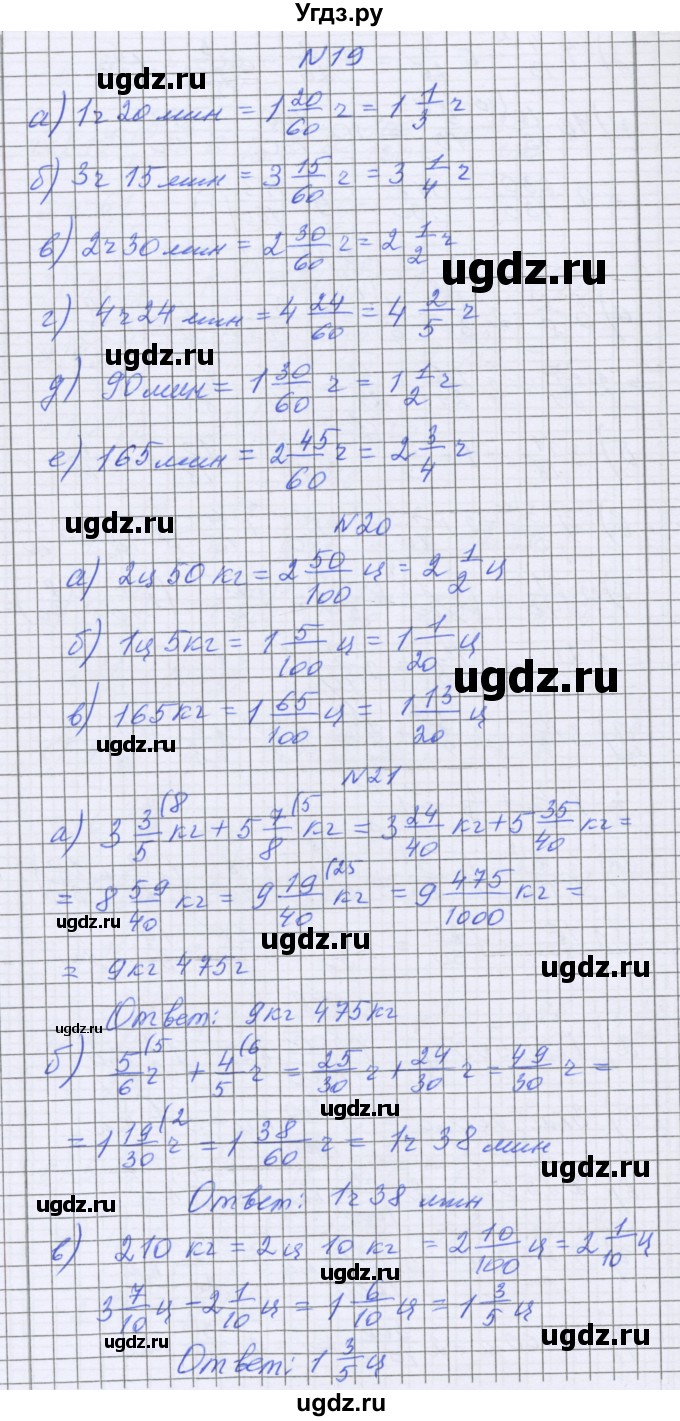 Угдз.ру
N19
ugdz.ru
а) 1ч 20 мин = 1 20/60 ч = 1 1/3 ч
б) 3ч 15 мин = 3 15/60 ч = 3 1/4 ч
в) 2ч 30 мин = 2 30/60 ч = 2 1/2 ч
ugdz.ru
г) 4ч 24 мин = 4 24/60 = 4 2/5 ч
ugdz.ru
д) 90 мин = 1 30/60 ч = 1 1/2 ч
е) 165 мин = 2 45/60 ч = 2 3/4 ч
ugdz.ru
N20
а) 2ц 50 кг = 2 50/100 ц = 2 1/2 ц
б) 1ц 5кг = 1 5/100 ц = 1 1/20 ц
ugdz.ru
в) 165 кг = 1 65/100 ц = 1 13/20 ц
ugdz.ru
N21
а) 3 3/5 (8 кг + 5 7/8 (5 кг = 3 24/40 кг + 5 35/40 кг =
= 8 59/40 кг = 9 19/40 (25 кг = 9 475/1000 кг =
ugdz.ru
ugdz.ru
= 9кг 475г
ugdz.ru
Ответ: 9кг 475кг
ugdz.ru
б) 5/6 (5 ч + 4/5 (6 ч = 25/30 ч + 24/30 ч = 49/30 ч =
ugdz.ru
= 1 19/30 (2 ч = 1 38/60 ч = 1ч 38 мин
ugdz.ru
Ответ: 1ч 38 мин
ugdz.ru
в) 210 кг = 2ц 10 кг = 2 10/100 ц = 2 1/10 ц
ugdz.ru
3 7/10 ц - 2 1/10 ц = 1 6/10 ц = 1 3/5 ц
ugdz.ru
ugdz.ru
Ответ: 1 3/5 ц
ugdz.ru